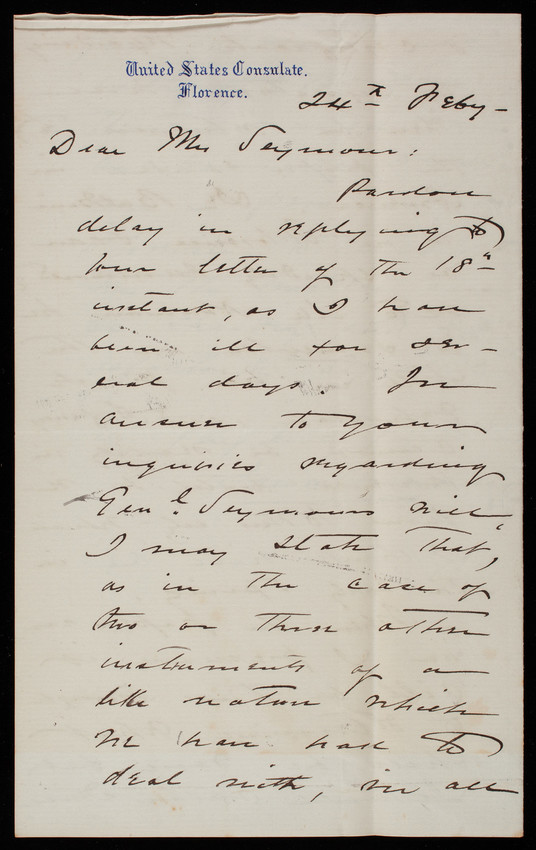 United States Consulate.
Florence.
24th Feby-
Dear Mrs Seymour:
Pardon
delay in replying to
your letter of the 18th
instant, as I have
been ill for sev-
eral days. In
answer to your
inquiries regarding
Genl. Seymours will,
I may state that,
as in the case of
two or three other
instruments of a
like nature which
we have had to
deal with, in all